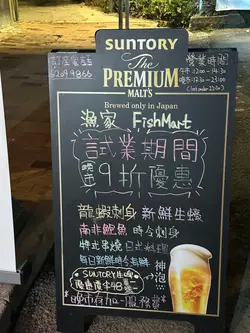 訂座電話
營業時間
午市: 12:00 - 14:30
SUNTORY
The
PREMIUM
MALT'S
Brewed only in Japan
漁家 FishMart
試業期間
晚市
9折優惠
龍蝦刺身 新鮮生蠔
南非鮑魚 時令刺身
特式串燒 日式料理
每日新鮮時令海鮮
SUNTORY生啤
神泡
*晚市有加一服務費*